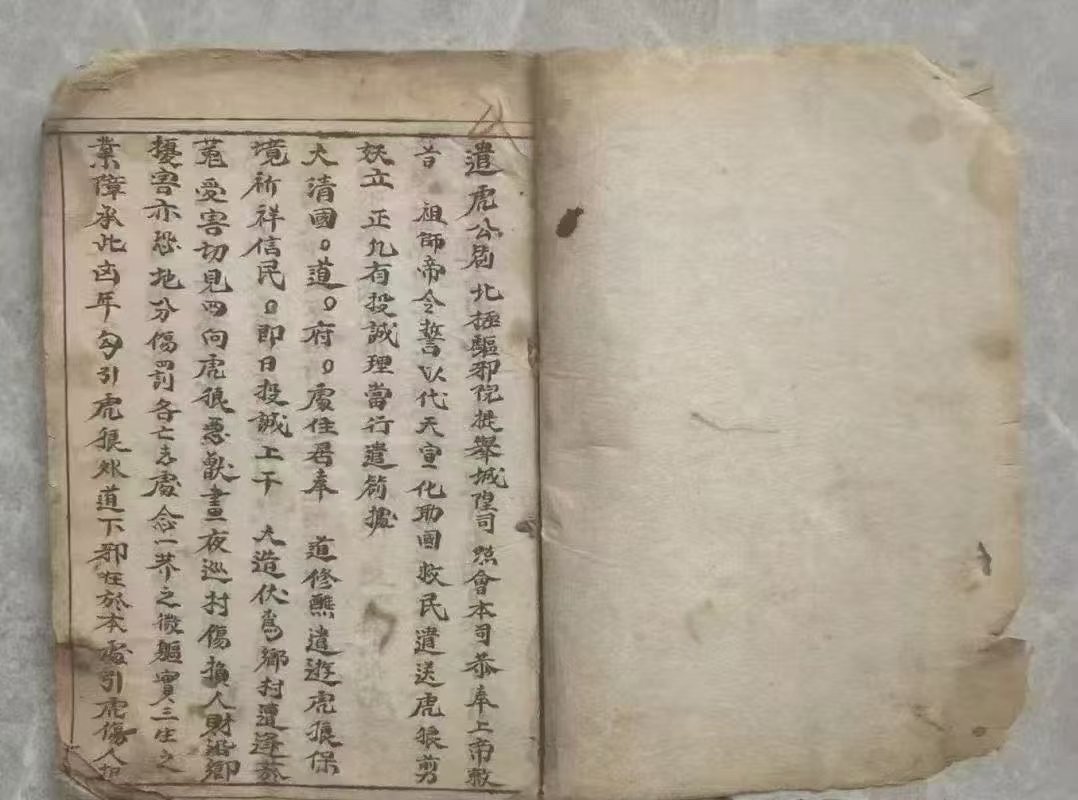 遣虎公筃 北極驅邪院提舉城隍司 照會本司恭奉上帝敕
昔 祖師帝令誓以代天宣化助國救民遣送虎狼剪
妖立 正凢有投誠理當行遣茍據
大清國〇道〇府〇處住居奉 道修醮遣遊虎狼保
境祈祥信民〇即日投誠上干 大造伏為鄉村遭逢
受害切見四向虎狼惡獸晝夜巡村傷損人財 鄉
擾害亦恐地分傷罰各亡去處念一芥之微軀實三生之
業障承此凶年勾引虎狼外道下邪在於本處引虎傷人